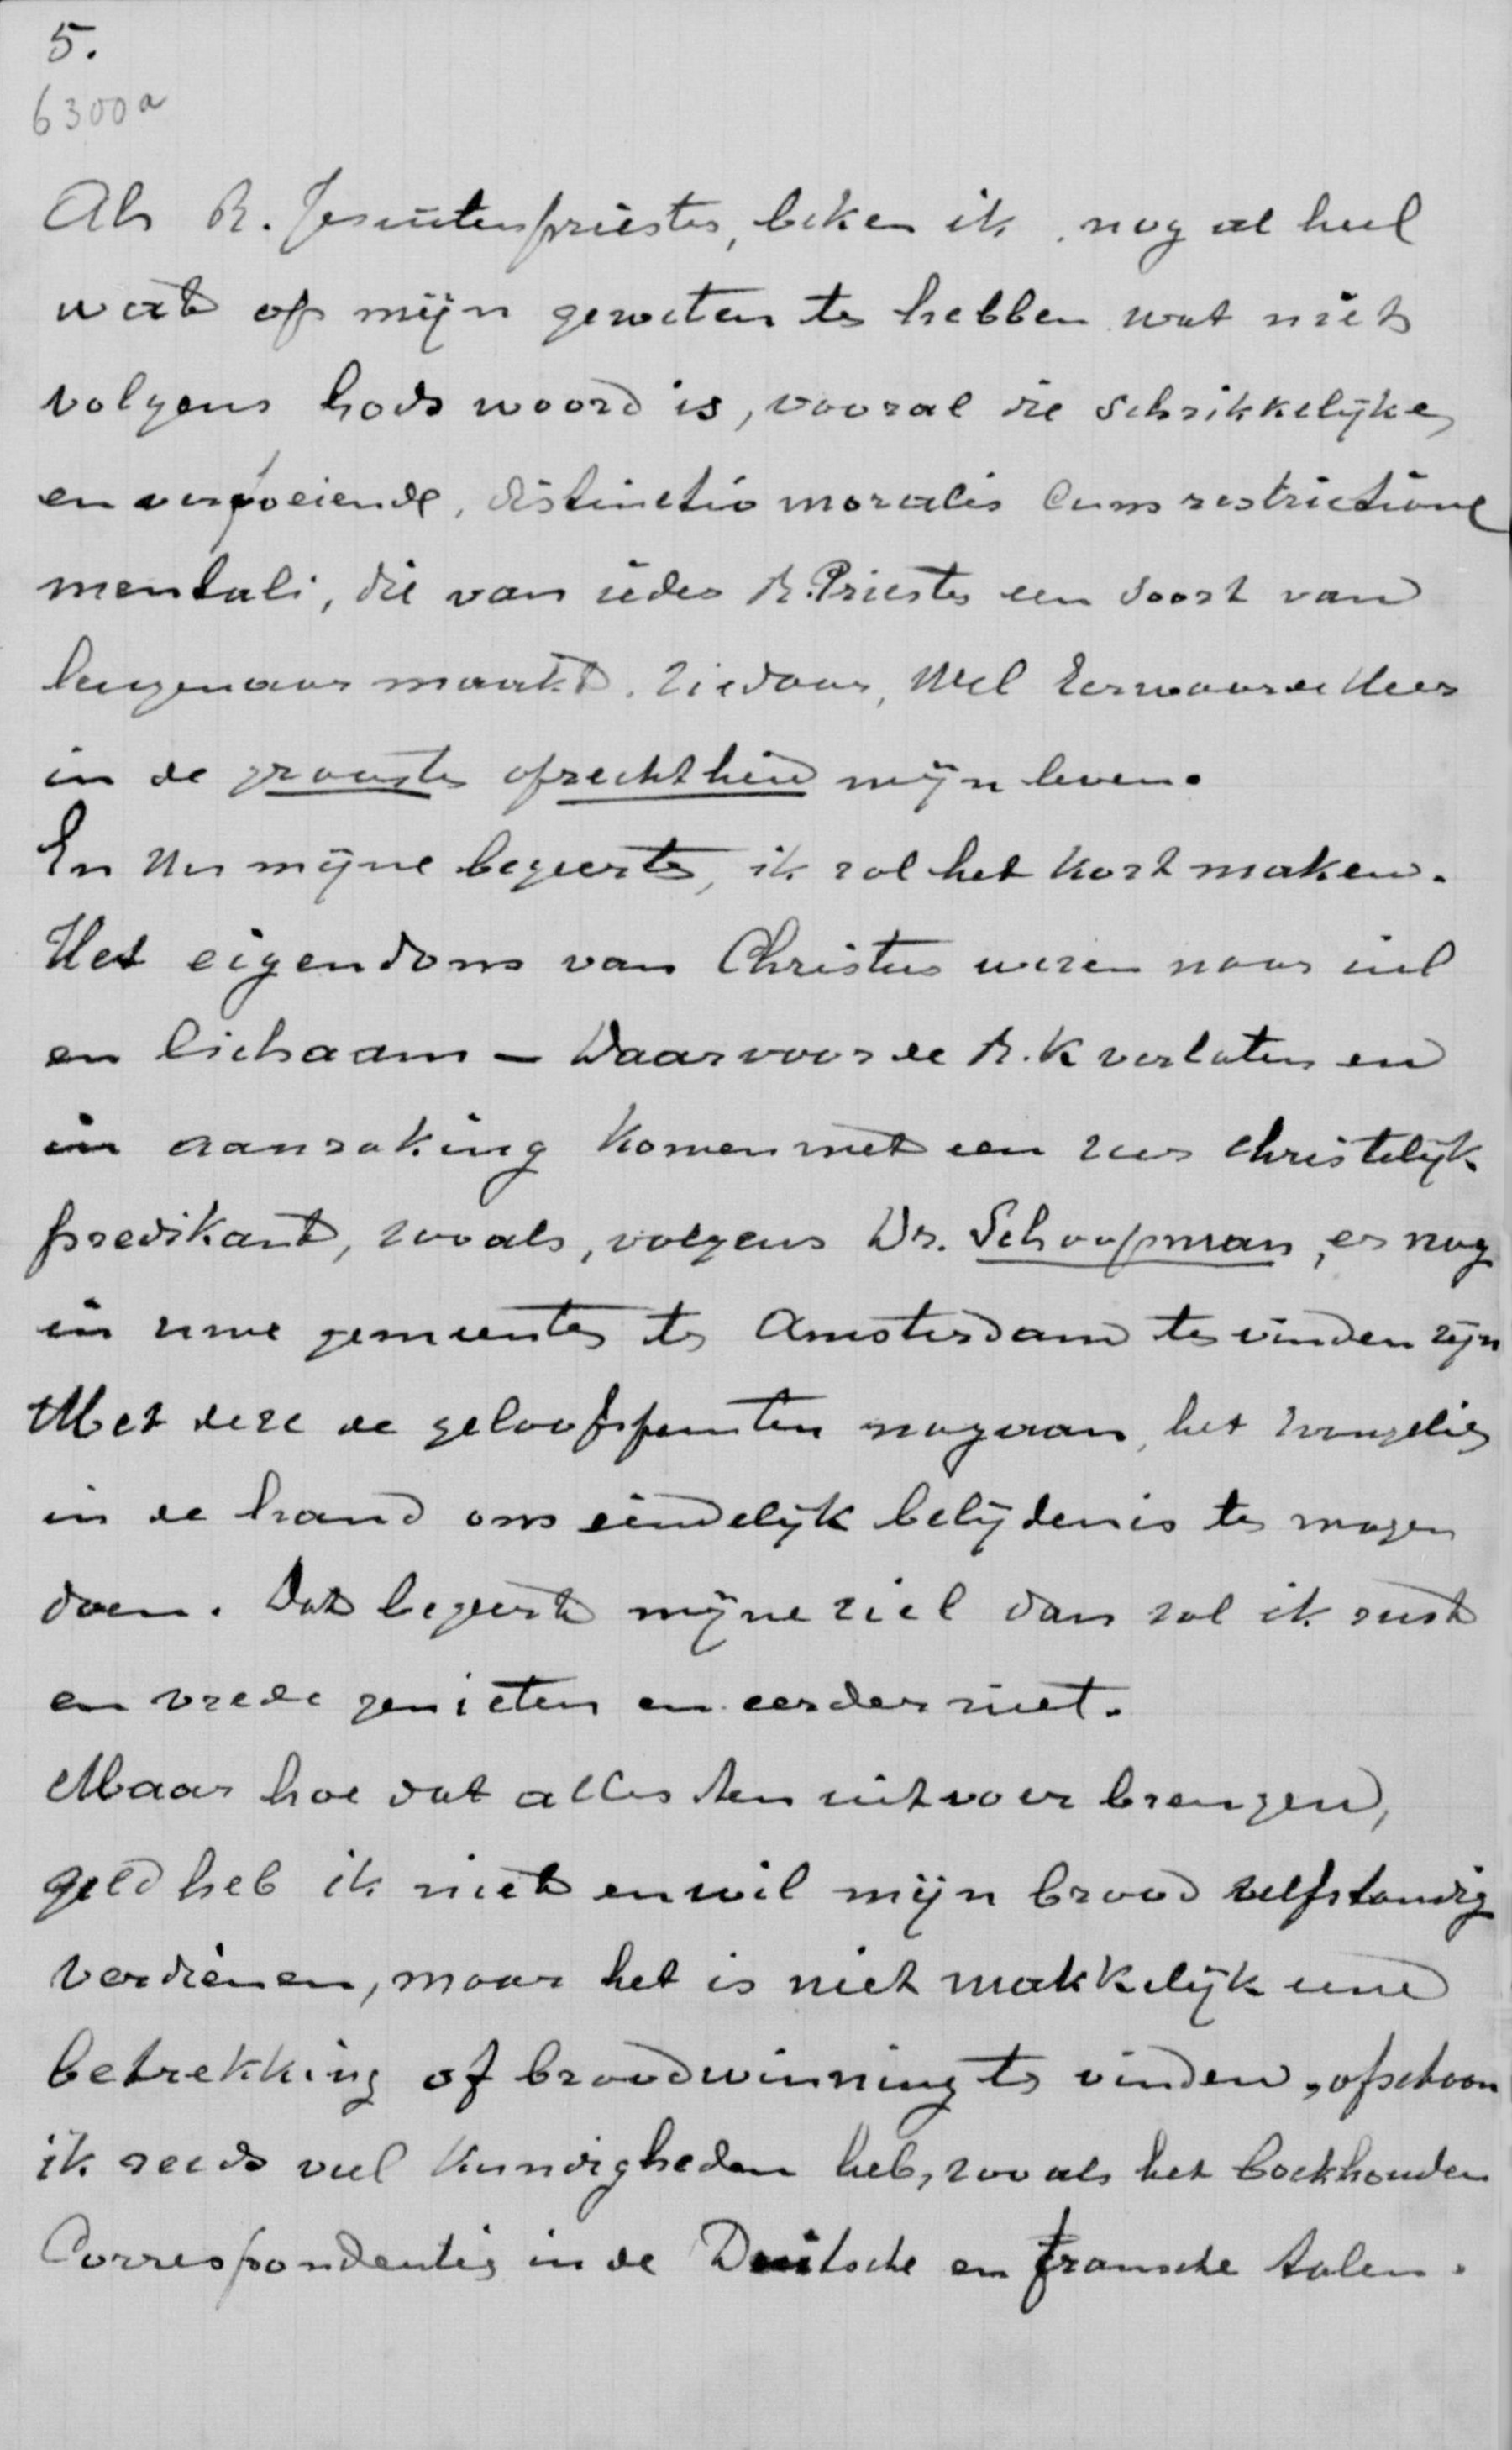 5.
6300a
Als R. Jesuitenpriester, beken ik nog al heel
wat op mijn geweten te hebben wat niet
volgens Gods woord is, vooral die schrikkelijke
en verfoeiende, distinctio moralis cum restrictione
mentali, die van ieder R. Priester een soort van
leugenaar maakt. Ziedaar, Wel Eerwaarde Heer
in de grootste oprechtheid mijn leven.
En nu mijne begeerte, ik zal het kort maken.
Het eigendom van Christus wezen naar ziel
en lichaam – Daarvoor de R. K verlaten en
in aanraking komen met een zeer christelijk
predikant, zooals, volgens Dr. Schaepman, er nog
in uwe gemeente te Amsterdam te vinden zijn
Met deze de geloofspunten nagaan, het Evangelie
in de hand om eindelijk belijdenis te mogen
doen. Dat begeert mijne ziel dan zal ik rust
en vrede genieten en eerder niet.
Maar hoe dat alles ten uitvoer brengen,
geld heb ik niet en wil mijn brood zelfstandig
verdienen, maar het is niet makkelijk eene
betrekking of broodwinning te vinden, ofschoon
ik reeds veel kundigheden heb, zooals het boekhouden
Correspondentie in de Duitsche en fransche talen.